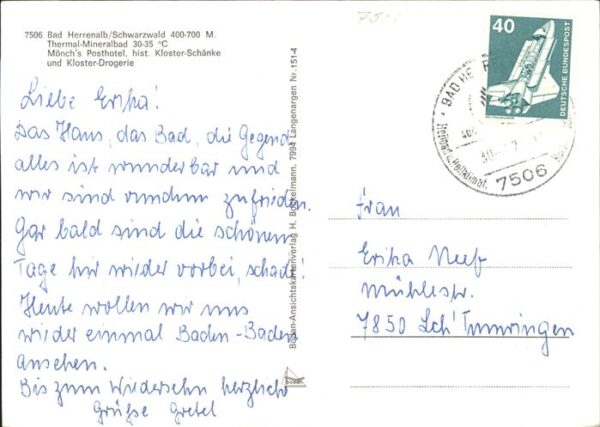 7506 Bad Herrenalb/Schwarzwald 400-700 M.
Thermal-Mineralbad 30-35 °C
Mönch's Posthotel, hist. Kloster-Schänke
und Kloster-Drogerie
Liebe Erika!
Das Haus, das Bad, die Gegend
alles ist wunderbar und
wir sind rundum zufrieden.
Gar bald sind die schönen
Tage hir wieder vorbei, schade!
Heute wollen wir uns
wieder einmal Baden-Baden
ansehen.
Bis zum Wiedersehn herzliche
Grüße Gretel
Baden-Ansichtskartenverlag H. Bockelmann, 7994 Langenargen Nr. 151-4
40
DEUTSCHE BUNDESPOST
BAD HE
Heilbad, Heilklimat.
7506
Frau
Erika Neef
Mühlestr.
7850 Lch' Tumringen